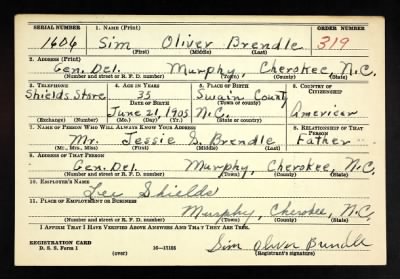 SERIAL NUMBER 1. NAME (Print) ORDER NUMBER
1606 Sim Oliver Brendle 319
(First) (Middle) (Last)
2. ADDRESS (Print)
Gen. Del. Murphy, Cherokee, N.C.
(Number and street or R. F. D. number) (Town) (County) (State)
3. TELEPHONE 4. AGE IN YEARS 5. PLACE OF BIRTH 6. COUNTRY OF CITIZENSHIP
Shields Store 35 Swain County
DATE OF BIRTH (Town or county)
June 21, 1905 N.C. American
(Exchange) (Number) (Mo.) (Day) (Yr.) (State or country)
7. NAME OF PERSON WHO WILL ALWAYS KNOW YOUR ADDRESS 8. RELATIONSHIP OF THAT PERSON
Mr. Jessie Brendle Father
(Mr., Mrs., Miss) (First) (Middle) (Last)
9. ADDRESS OF THAT PERSON
Gen. Del. Murphy, Cherokee, N.C.
(Number and street or R. F. D. number) (Town) (County) (State)
10. EMPLOYER'S NAME
Lee Shields
11. PLACE OF EMPLOYMENT OR BUSINESS
Murphy, Cherokee, N.C.
(Number and street or R. F. D. number) (Town) (County) (State)
I AFFIRM THAT I HAVE VERIFIED ABOVE ANSWERS AND THAT THEY ARE TRUE.
REGISTRATION CARD
D. S. S. Form 1 (over) Sim Oliver Brendle
(Registrant's signature)